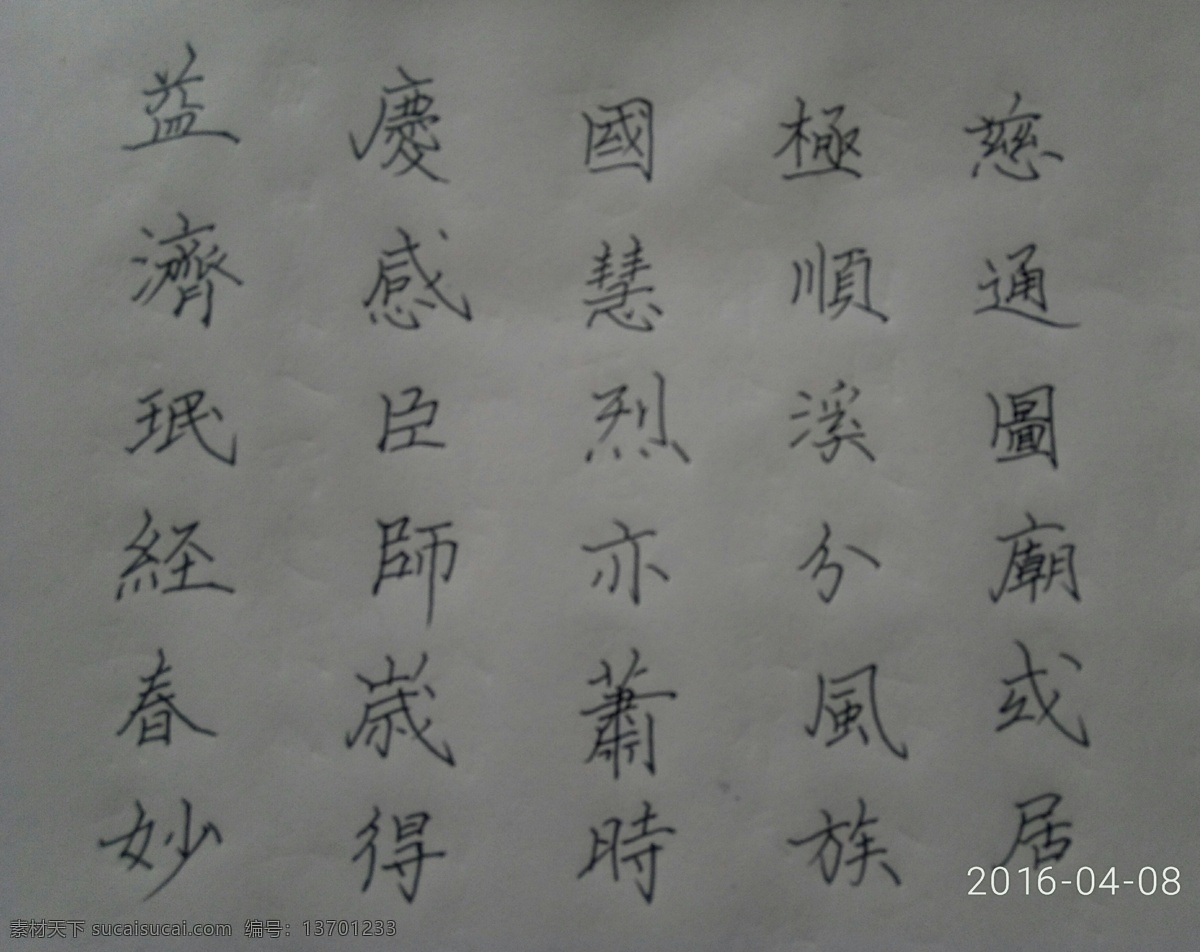 慈通圖廟或居
極順溪分風族
國慧烈亦蕭時
慶感臣師歳得
益濟珉経春妙
2016-04-08
素材天下 sucaisucai.com 编号：13701233